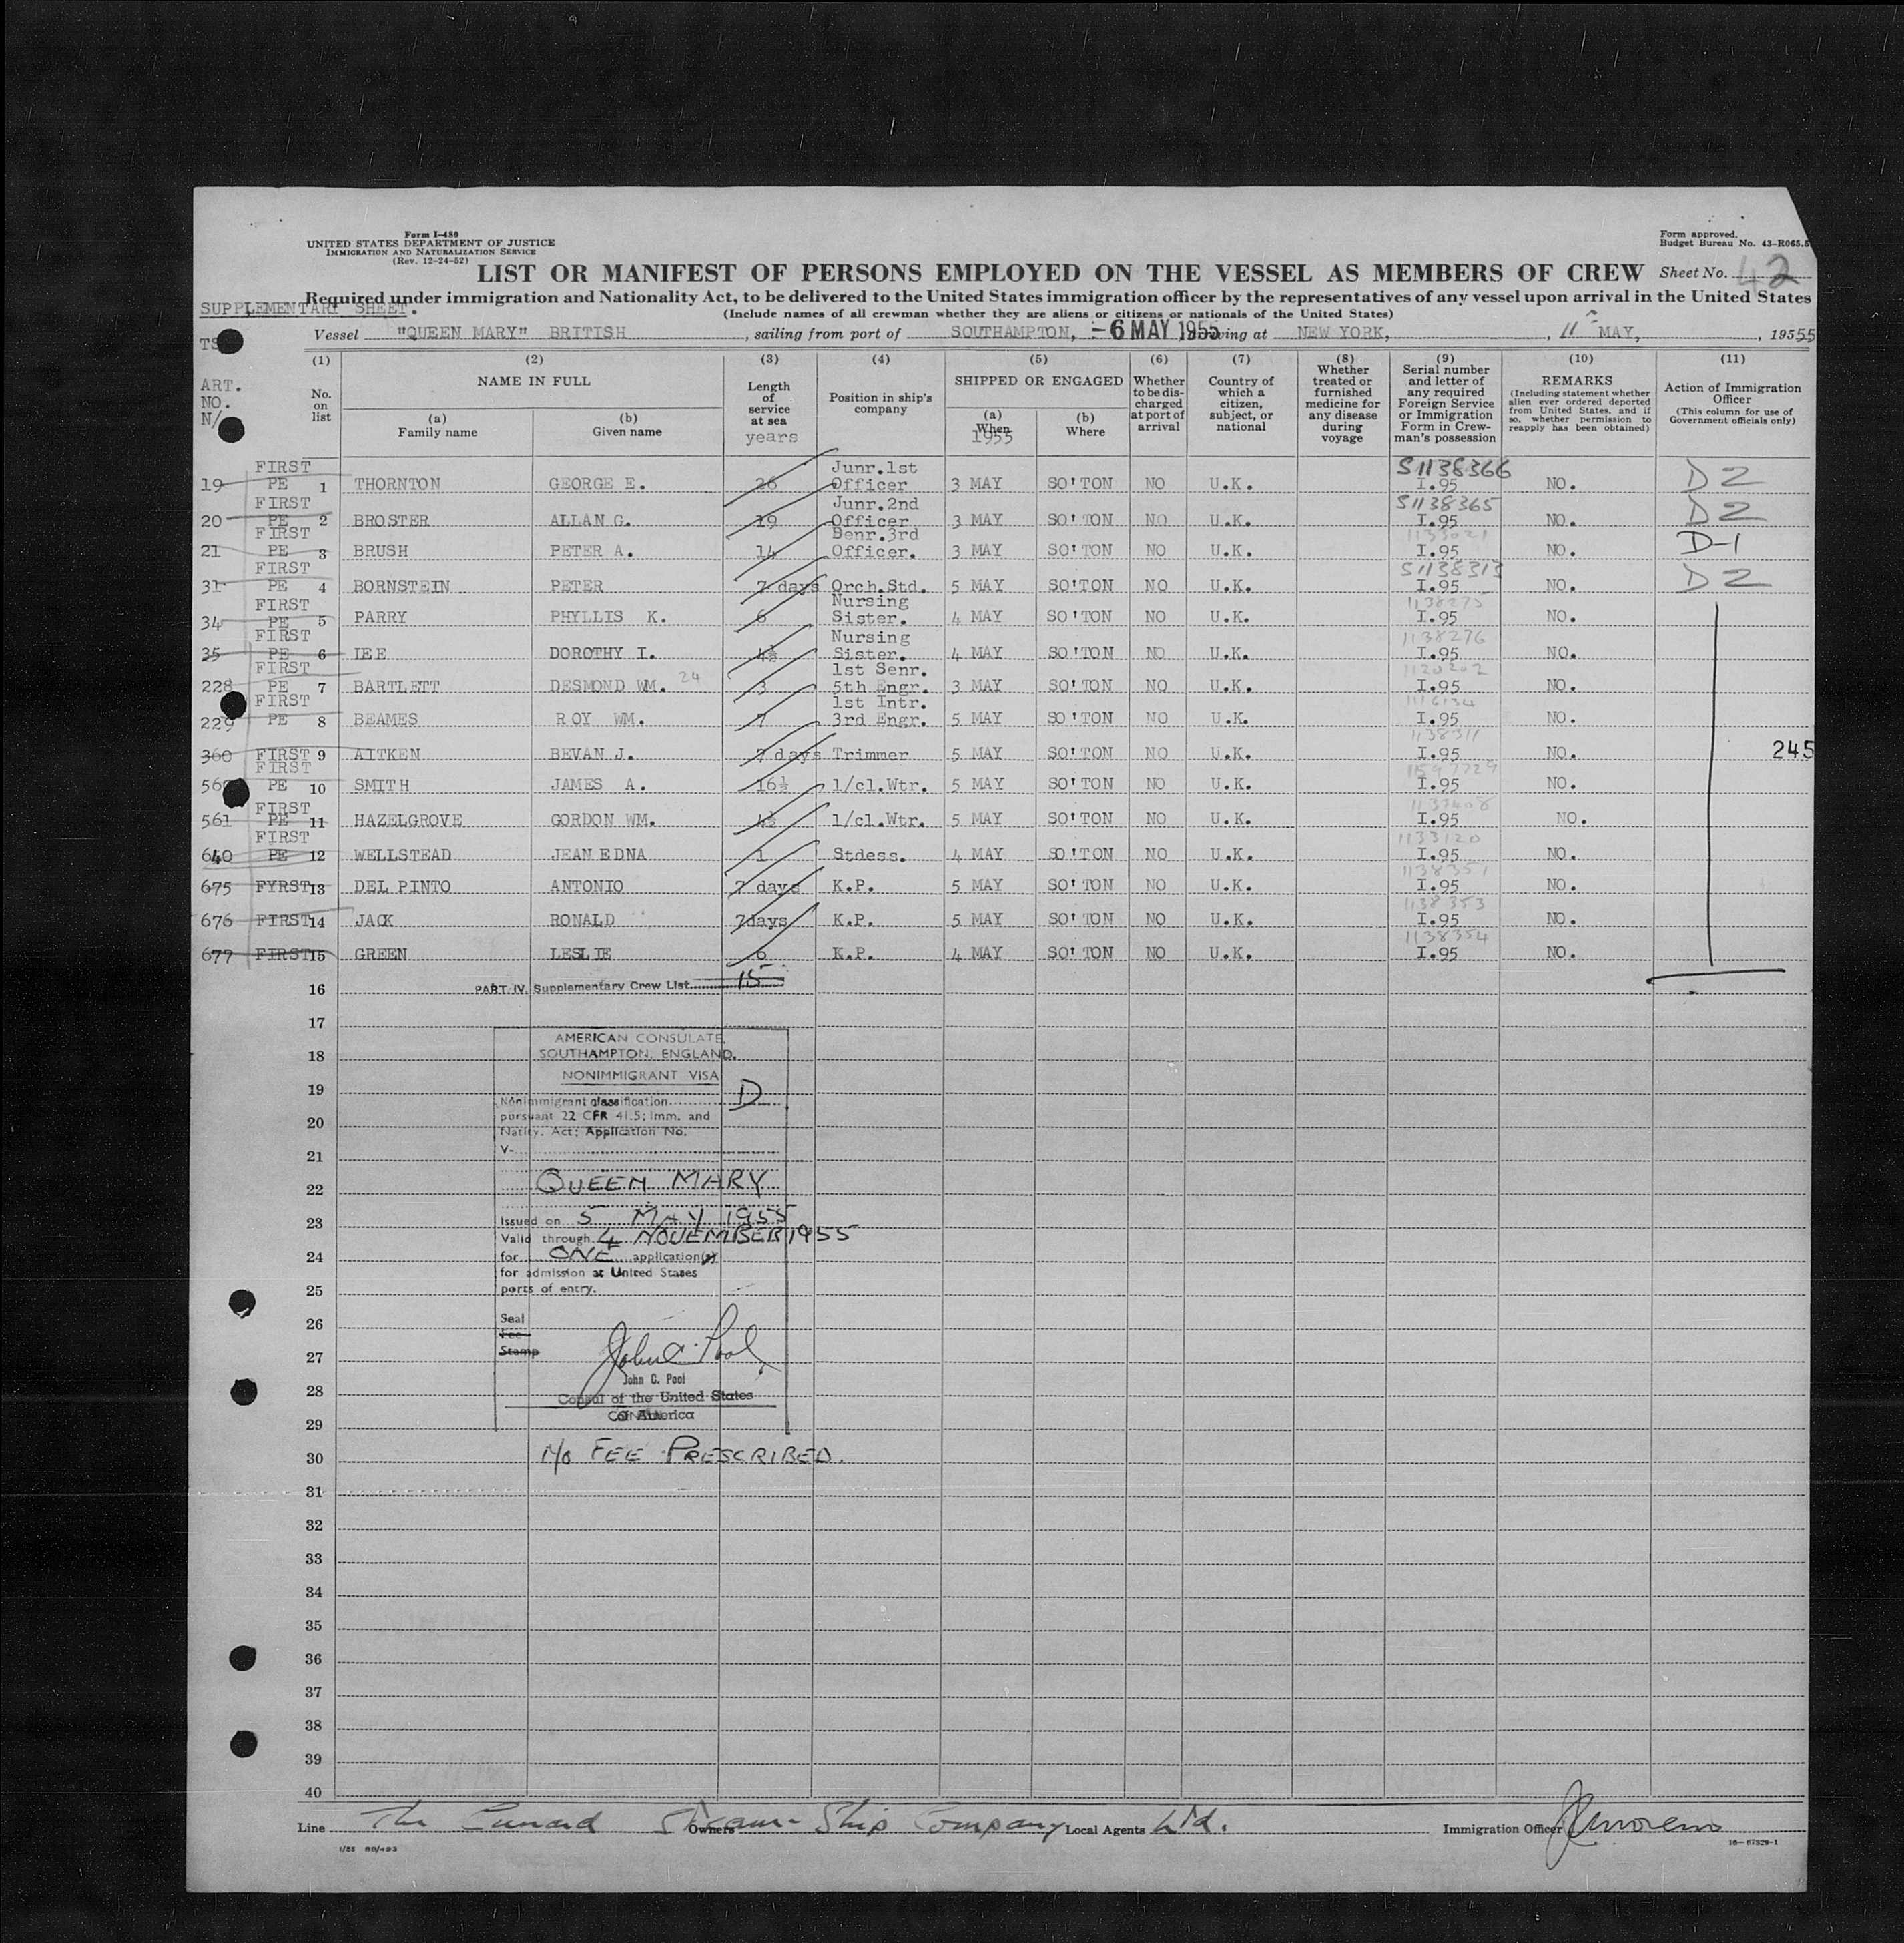 Form I-480
UNITED STATES DEPARTMENT OF JUSTICE
IMMIGRATION AND NATURALIZATION SERVICE
(Rev. 12-24-52)
Form approved.
Budget Bureau No. 43-R065.5
LIST OR MANIFEST OF PERSONS EMPLOYED ON THE VESSEL AS MEMBERS OF CREW
Sheet No. 42
Required under immigration and Nationality Act, to be delivered to the United States immigration officer by the representatives of any vessel upon arrival in the United States
SUPPLEMENTARY SHEET.
(Include names of all crewman whether they are aliens or citizens or nationals of the United States)
Vessel "QUEEN MARY" BRITISH, sailing from port of SOUTHAMPTON, -6 MAY 1955 arriving at NEW YORK, 11 MAY, 1955
ART. NO.
(1) No. on list
(2) NAME IN FULL (a) Family name (b) Given name
(3) Length of service at sea years
(4) Position in ship's company
(5) SHIPPED OR ENGAGED (a) When 1955 (b) Where
(6) Whether to be discharged at port of arrival
(7) Country of which a citizen, subject, or national
(8) Whether treated or furnished medicine for any disease during voyage
(9) Serial number and letter of any required Foreign Service or Immigration Form in Crewman's possession
(10) REMARKS (Including statement whether alien ever ordered deported from United States, and if so, whether permission to reapply has been obtained)
(11) Action of Immigration Officer (This column for use of Government officials only)
19 FIRST PE 1 THORNTON GEORGE E. 26 Junr.1st Officer 3 MAY SO'TON NO U.K. S1138366 I.95 NO. D2
20 FIRST PE 2 BROSTER ALLAN G. 19 Junr.2nd Officer 3 MAY SO'TON NO U.K. S1138365 I.95 NO. D2
21 FIRST PE 3 BRUSH PETER A. 14 Senr.3rd Officer. 3 MAY SO'TON NO U.K. I.95 NO. D-1
31 FIRST PE 4 BORNSTEIN PETER 7 days Orch.Std. 5 MAY SO'TON NO U.K. S1138313 I.95 NO. D2
34 FIRST PE 5 PARRY PHYLLIS K. 6 Nursing Sister. 4 MAY SO'TON NO U.K. 1138275 I.95 NO.
35 FIRST PE 6 LEE DOROTHY I. 4½ Nursing Sister. 4 MAY SO'TON NO U.K. 1138276 I.95 NO.
228 FIRST PE 7 BARTLETT DESMOND WM. 24 3 1st Senr. 5th Engr. 3 MAY SO'TON NO U.K. I.95 NO.
229 FIRST PE 8 BEAMES ROY WM. 7 1st Intr. 3rd Engr. 5 MAY SO'TON NO U.K. I.95 NO.
360 FIRST 9 AITKEN BEVAN J. 7 days Trimmer 5 MAY SO'TON NO U.K. 1138311 I.95 NO. 245
FIRST PE 10 SMITH JAMES A. 16½ 1/cl.Wtr. 5 MAY SO'TON NO U.K. I.95 NO.
561 FIRST PE 11 HAZELGROVE GORDON WM. 4½ 1/cl.Wtr. 5 MAY SO'TON NO U.K. I.95 NO.
640 FIRST PE 12 WELLSTEAD JEAN EDNA 1 Stdess. 4 MAY SO'TON NO U.K. 1133120 I.95 NO.
675 FYRST 13 DEL PINTO ANTONIO 7 days K.P. 5 MAY SO'TON NO U.K. 1138351 I.95 NO.
676 FIRST 14 JACK RONALD 7days K.P. 5 MAY SO'TON NO U.K. 1138353 I.95 NO.
677 FIRST 15 GREEN LESLIE 6 K.P. 4 MAY SO'TON NO U.K. 1138354 I.95 NO.
16 PART. IV. Supplementary Crew List 15
17
18
19
20
21
22
23
24
25
26
27
28
29
30
31
32
33
34
35
36
37
38
39
40
AMERICAN CONSULATE
SOUTHAMPTON, ENGLAND.
NONIMMIGRANT VISA
Nonimmigrant classification D
pursuant 22 CFR 41.5; Imm. and
Natlty. Act; Application No.
V-
QUEEN MARY
Issued on 5 MAY 1955
Valid through 4 NOVEMBER 1955
for ONE application(s)
for admission at United States
ports of entry.
Seal
Fee
Stamp
John C. Pool
John C. Pool
Consul of the United States
of America
No FEE PRESCRIBED.
Line The Cunard Steam-Ship Company Ltd. Owners Local Agents Immigration Officer
1/55 88/493
16-67529-1